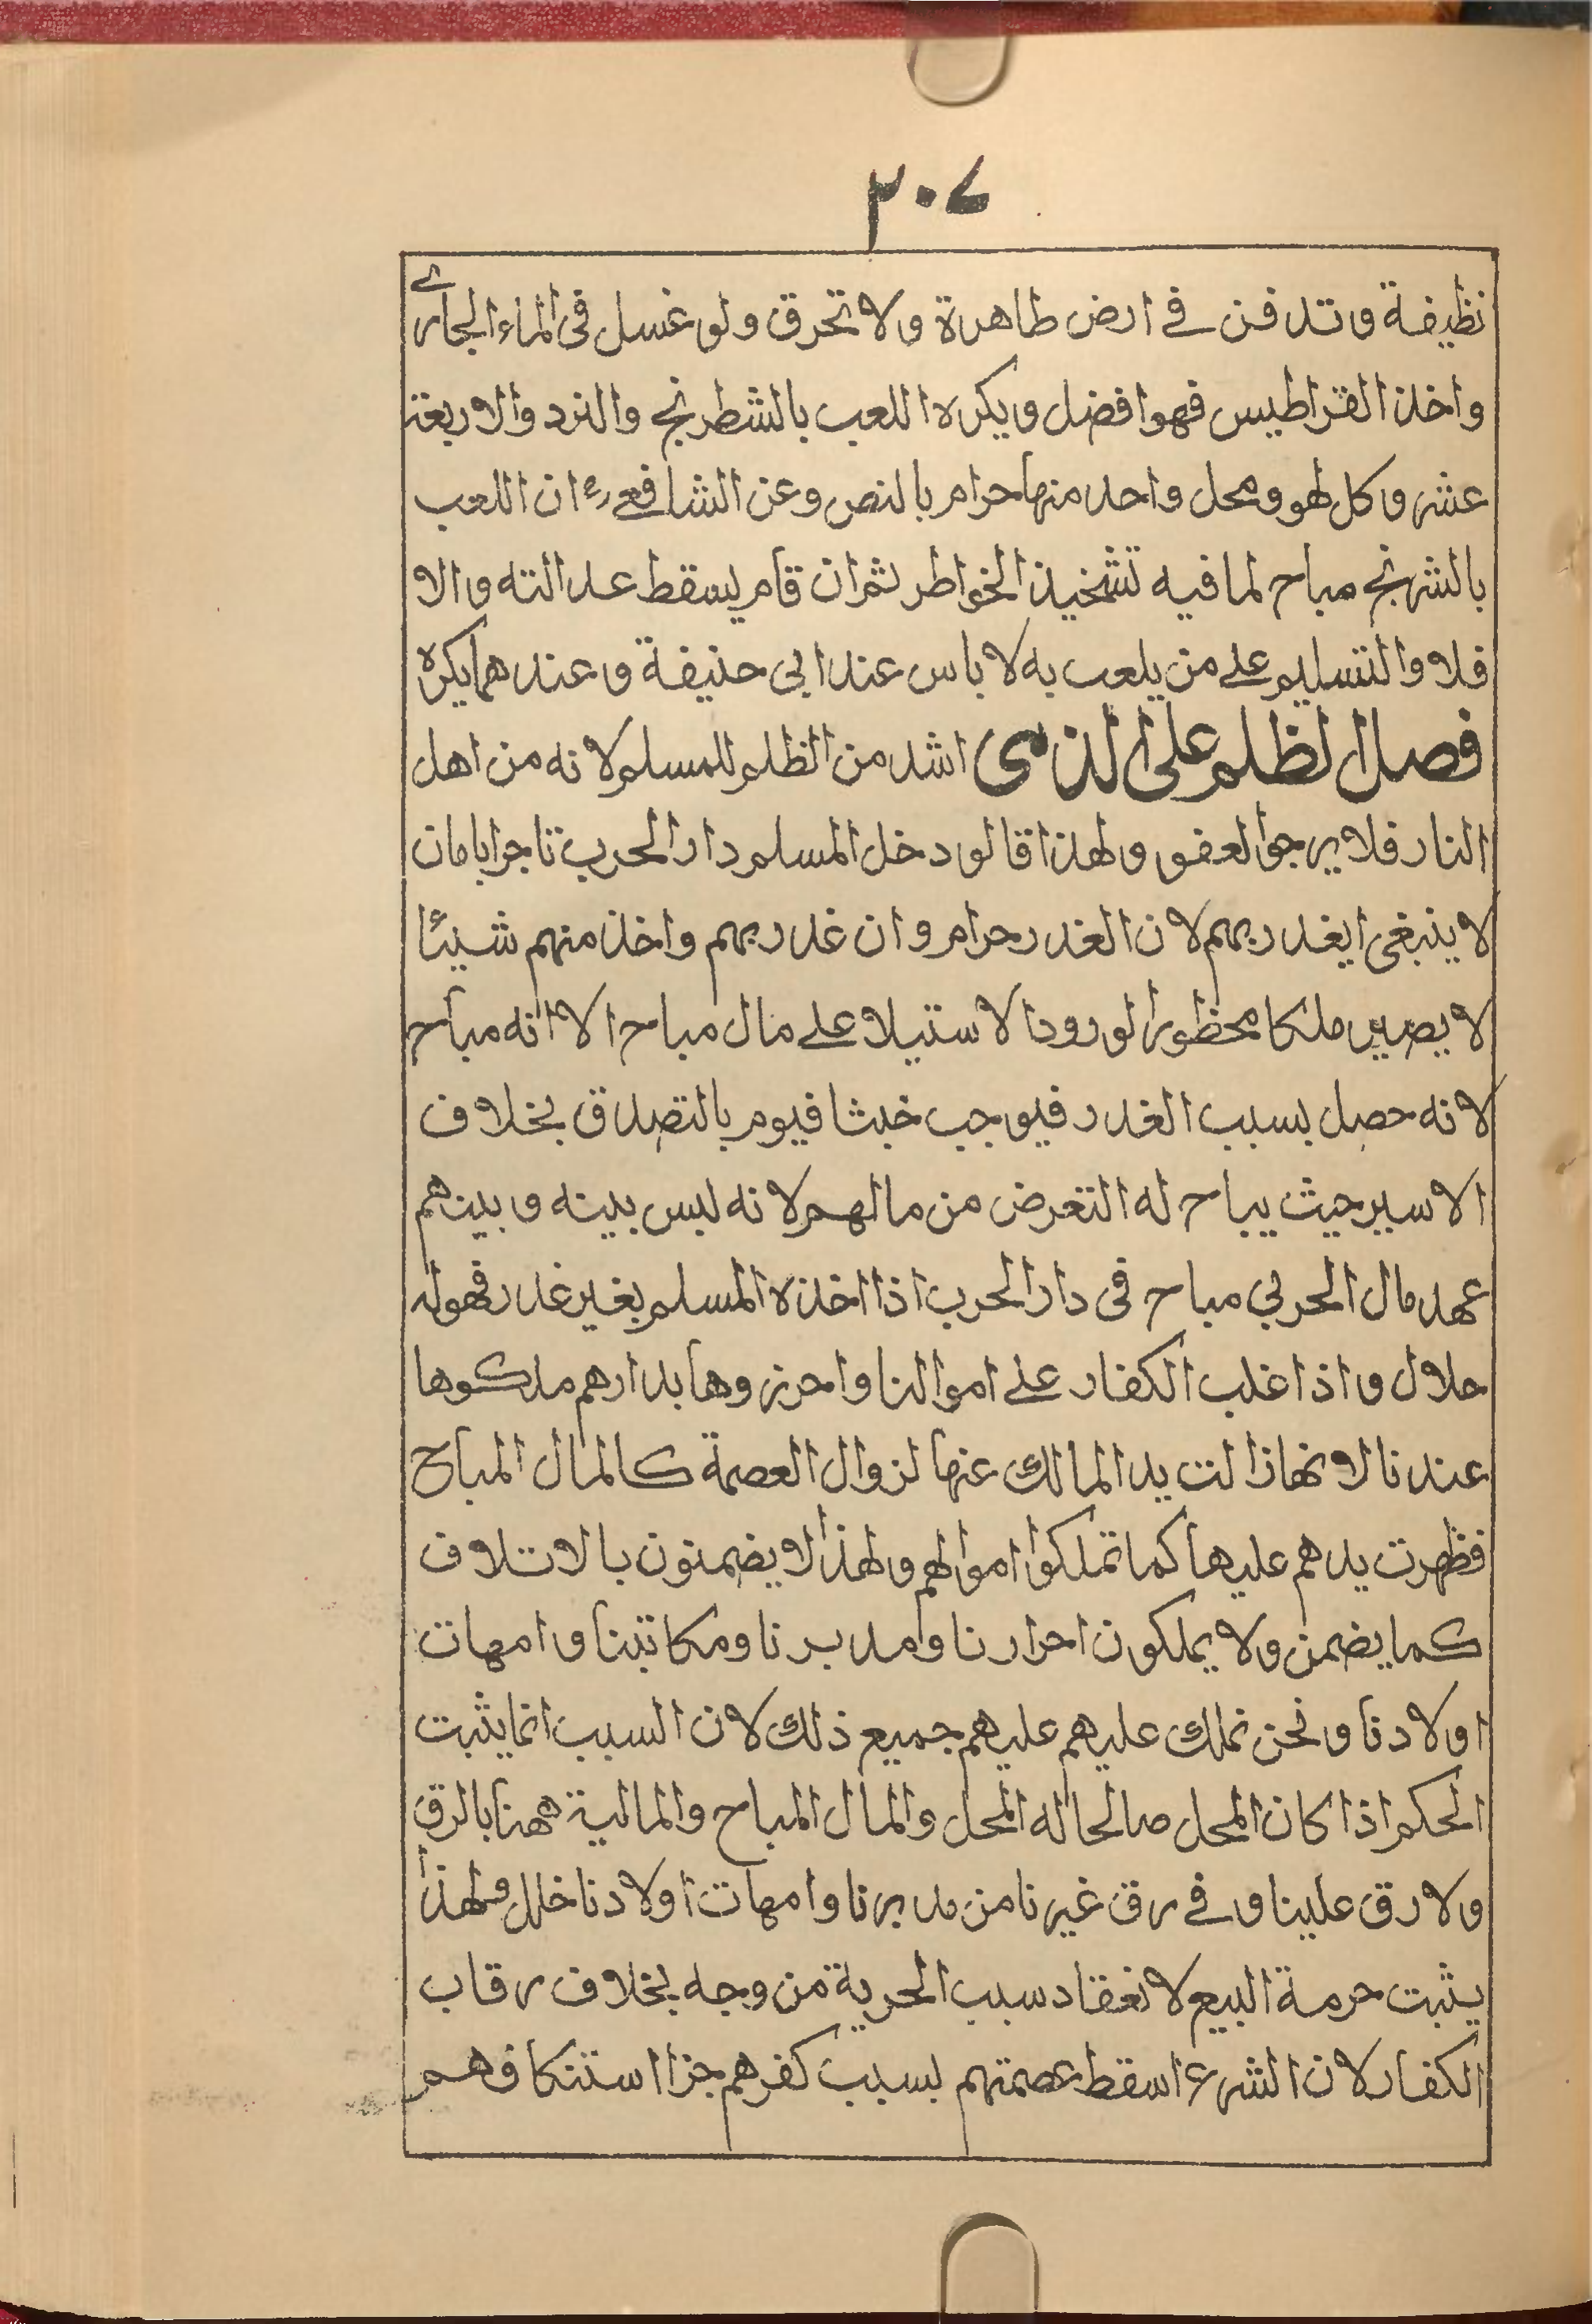 ٢٠٧
نظيفة وتدفن في ارض طاهرة ولا تحرق ولو غسل في الماء الجارے
واخذ القراطيس فهو افضل ويكره اللعب بالشطرنج والنرد والاربعة
عشر وكل لهو ومحل واحد منها حرام بالنص وعن الشافعي ان اللعب
بالشرنج مباح لما فيه تشخيذ الخواطر ثم ان قام يسقط عدالته والا
فلا والتسليم على من يلعب به لا باس عند ابى حنيفة وعندهما يكره
فصل الظلم على الذمى اشد من الظلم للمسلم لانه من اهل
النار فلا يرجو العفو ولهذا قالو دخل المسلم دار الحرب تاجرا بامان
لا ينبغى ايغدر بهم لان الغدر حرام وان غدر بهم واخذ منهم شيئا
لا يصير ملكا محظورا لورود الاستيلا على مال مباح الا انه مباح
لانه حصل بسبب الغدر فيوجب خبثا فيوم بالتصدق بخلاف
الاسير حيث يباح له التعرض من مالهم لانه ليس بينه وبينهم
عهد مال الحربي مباح فى دار الحرب اذا اخذه المسلم بغير غدر فهوله
حلال واذا غلب الكفار على اموالنا واحرزوها بدارهم ملكوها
عندنا لانها ذالت يد المالك عنها لزوال العصمة كالمال المباح
فظهرت يدهم عليها كما تملكوا اموالهم ولهذا لا يضمنون بالاتلاف
كما يضمن ولا يملكون احرارنا ومدبرنا ومكاتبنا وامهات
اولادنا ونحن نملك عليهم عليهم جميع ذلك لان السبب انما يثبت
الحكم اذا كان المحل صالحا له المحل والمال المباح والمالية ههنا بالرق
ولا رق علينا وفي رق غيرنا من مدبرنا وامهات اولادنا خلل ولهذا
يثبت حرمة البيع لانعقاد سبب الحرية من وجه بخلاف رقاب
الكفار لان الشرع اسقط عصمتهم بسبب كفرهم جزا استنكافهم